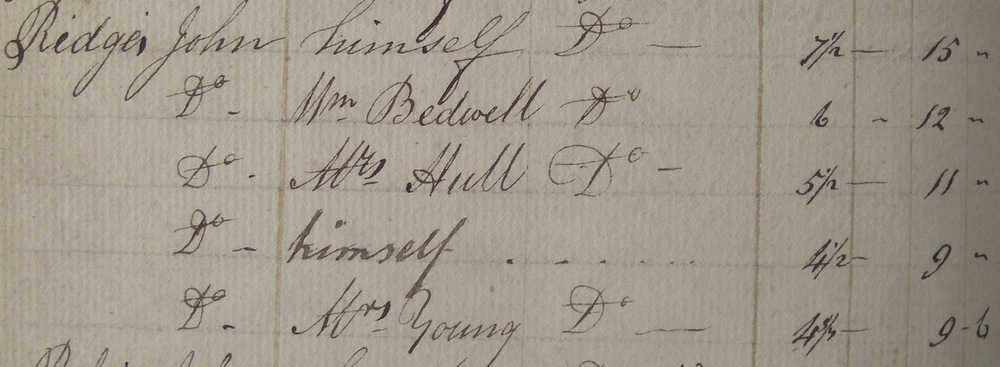 Ridges John himself Do — 7½ — 15 "
Do - Wm Bedwell Do 6 " 12 "
Do - Mrs Hull Do - 5½ — 11 "
Do - himself . . . . . . 4½ - 9 "
Do - Mrs Young Do — 9 - 6
John